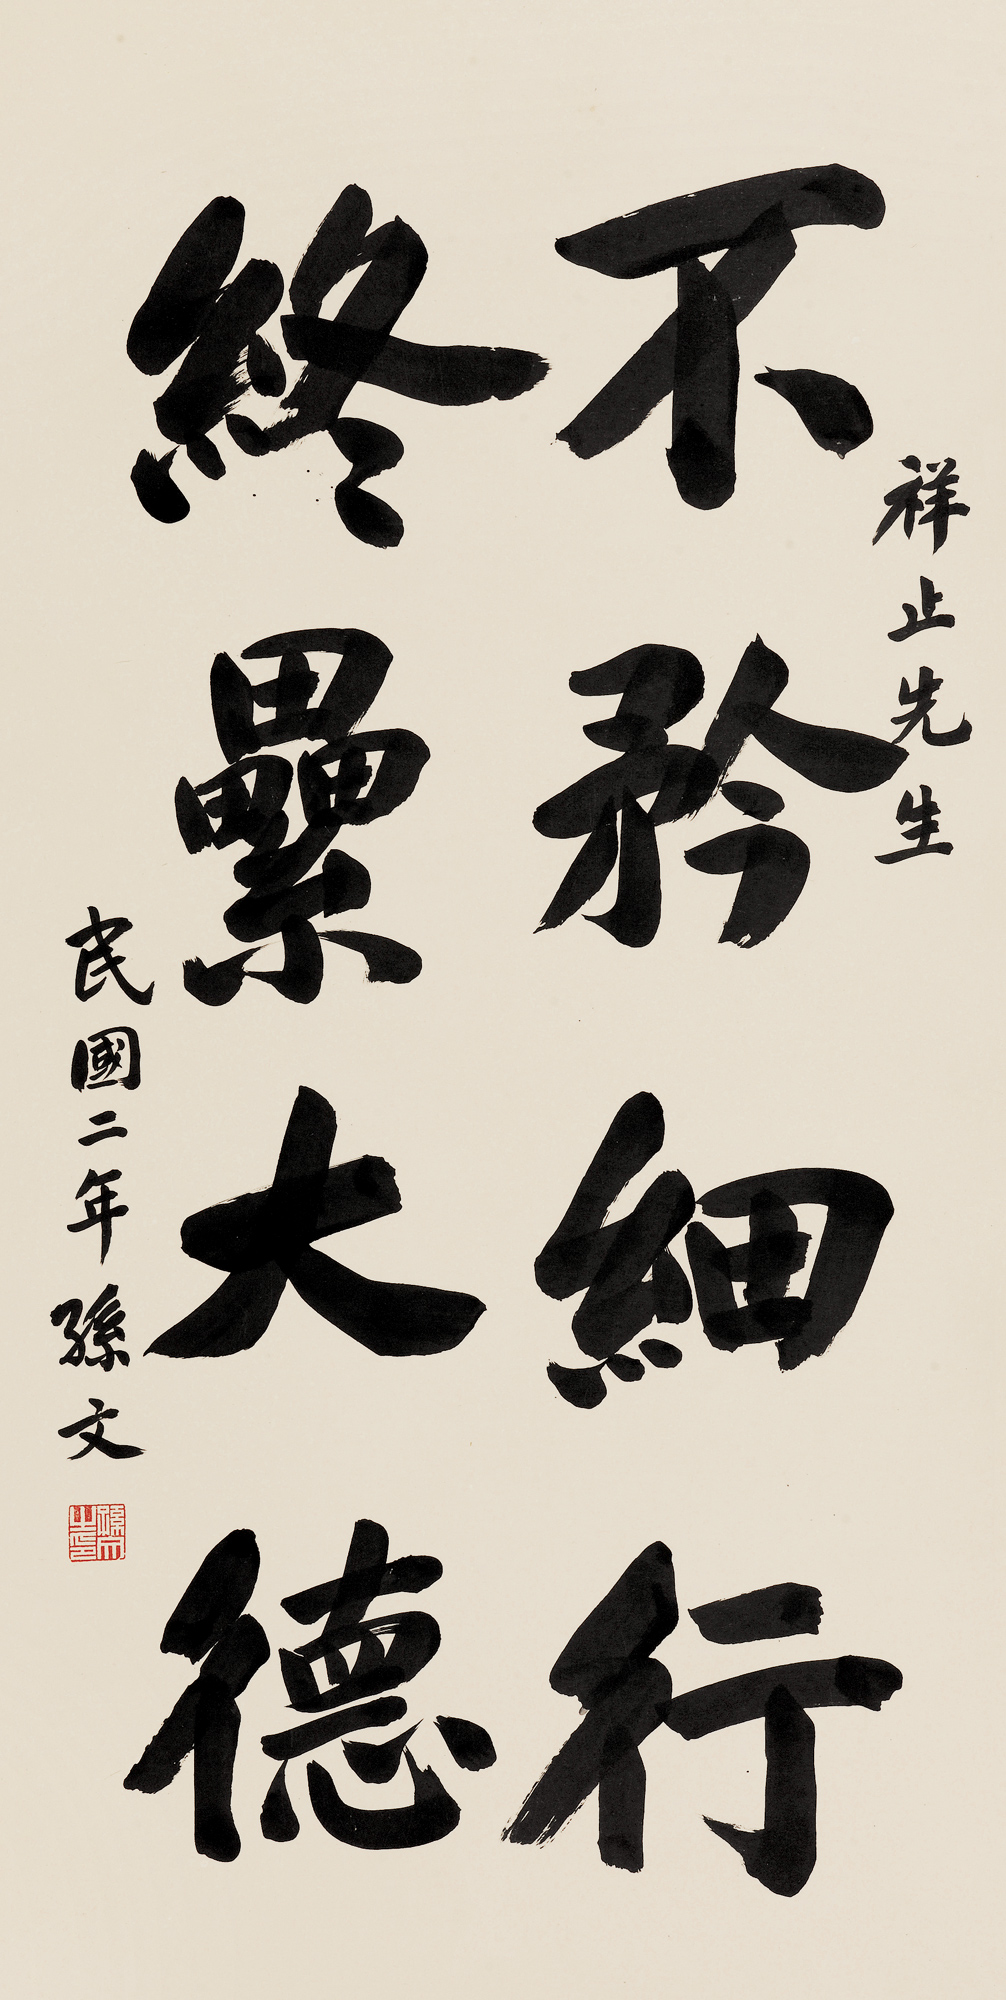 祥止先生
不矜細行
終纍大德
民國二年孫文
孫文之印